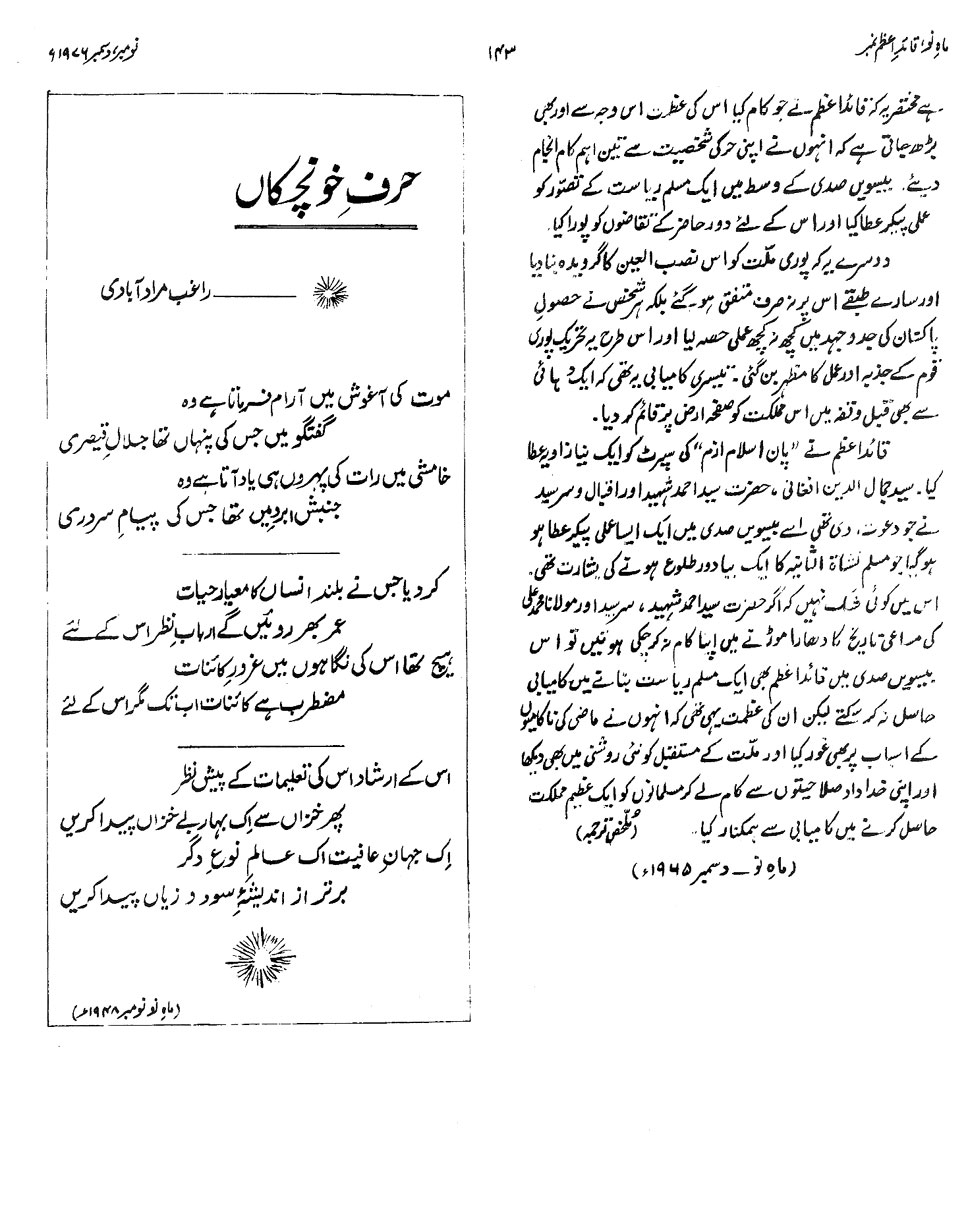 ماہِ نو، قائدِ اعظم نمبر
۱۴۳
نومبر، دسمبر ۱۹۷۶ء
ہے مختصر یہ کہ قائداعظم نے جو کام کیا اس کی عظمت اس وجہ سے اور بھی
بڑھ جاتی ہے کہ انہوں نے اپنی حرکی شخصیت سے تین اہم کام انجام
دیئے۔ بیسویں صدی کے وسط میں ایک مسلم ریاست کے تصوّر کو
عملی پیکر عطا کیا اور اس کے لئے دور حاضر کے تقاضوں کو پورا کیا۔
دوسرے یہ کہ پوری ملّت کو اس نصب العین کا گرویدہ بنا دیا
اور سارے طبقے اس پر نہ صرف متفق ہو گئے بلکہ ہر شخص نے حصولِ
پاکستان کی جدوجہد میں کچھ نہ کچھ عملی حصہ لیا اور اس طرح یہ تحریک پوری
قوم کے جذبہ اور عمل کا مظہر بن گئی۔ تیسری کامیابی یہ تھی کہ ایک دہائی
سے بھی قبل وقفہ میں اس مملکت کو صفحہ ارض پر قائم کر دیا۔
قائداعظم نے "پان اسلام ازم" کی سپرٹ کو ایک نیا زاویہ عطا
کیا۔ سید جمال الدین افغانی، حضرت سید احمد شہید اور اقبال و سرسید
نے جو دعوت دی تھی اسے بیسویں صدی میں ایک ایسا عملی پیکر عطا ہو
ہو گیا جو مسلم نشاۃ الثانیہ کا ایک نیا دور طلوع ہونے کی بشارت تھی۔
اس میں کوئی شک نہیں کہ اگر حضرت سید احمد شہید، سرسید اور مولانا محمد علی
کی مساعی تاریخ کا دھارا موڑنے میں اپنا کام نہ کر چکی ہوتیں تو اس
بیسویں صدی میں قائداعظم بھی ایک مسلم ریاست بنانے میں کامیابی
حاصل نہ کر سکتے لیکن ان کی عظمت یہی تھی کہ انہوں نے ماضی کی ناکامیوں
کے اسباب پر بھی غور کیا اور ملّت کے مستقبل کو نئی روشنی میں بھی دیکھا
اور اپنی خداداد صلاحیتوں سے کام لے کر مسلمانوں کو ایک عظیم مملکت
حاصل کرنے میں کامیابی سے ہمکنار کیا۔ (ملخص ترجمہ)
(ماہِ نو ـ دسمبر ۱۹۶۵ء)
حرفِ خونچکاں
راغب مراد آبادی
موت کی آغوش میں آرام فرماتا ہے وہ
گفتگو میں جس کی پنہاں تھا جلالِ قیصری
خامشی میں رات کی پہروں ہی یاد آتا ہے وہ
جنبش ابرو میں تھا جس کی پیامِ سروری
کر دیا جس نے بلند انساں کا معیارِ حیات
عمر بھر روئیں گے اربابِ نظر اس کے لئے
ہیچ تھا اس کی نگاہوں میں غرورِ کائنات
مضطرب ہے کائنات اب تک مگر اس کے لئے
اس کے ارشاد اس کی تعلیمات کے پیشِ نظر
پھر خزاں سے اِک بہارِ بے خزاں پیدا کریں
اِک جہانِ عافیت اک عالمِ نوعِ دگر
برتر از اندیشۂ سود و زیاں پیدا کریں
(ماہِ نو نومبر ۱۹۴۸ء)